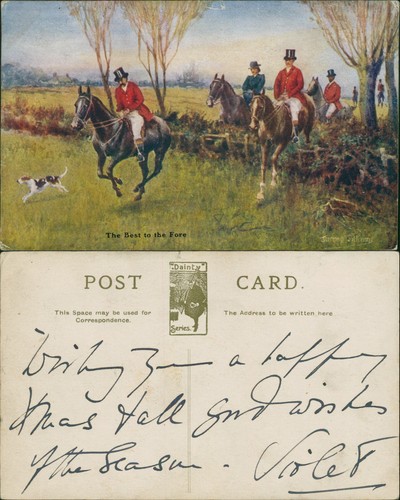 The Best to the Fore
POST CARD.
"Dainty"
Series.
This Space may be used for
Correspondence.
The Address to be written here
Wishing you a happy
Xmas & all good wishes
of the Season - Violet